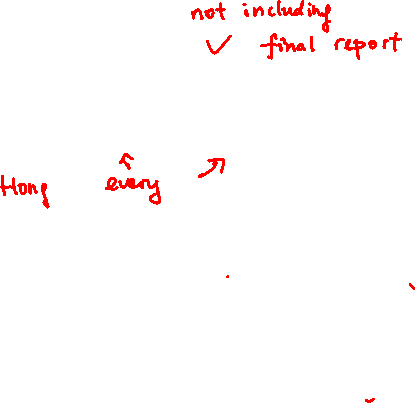 not including
✓ final report
Hong every